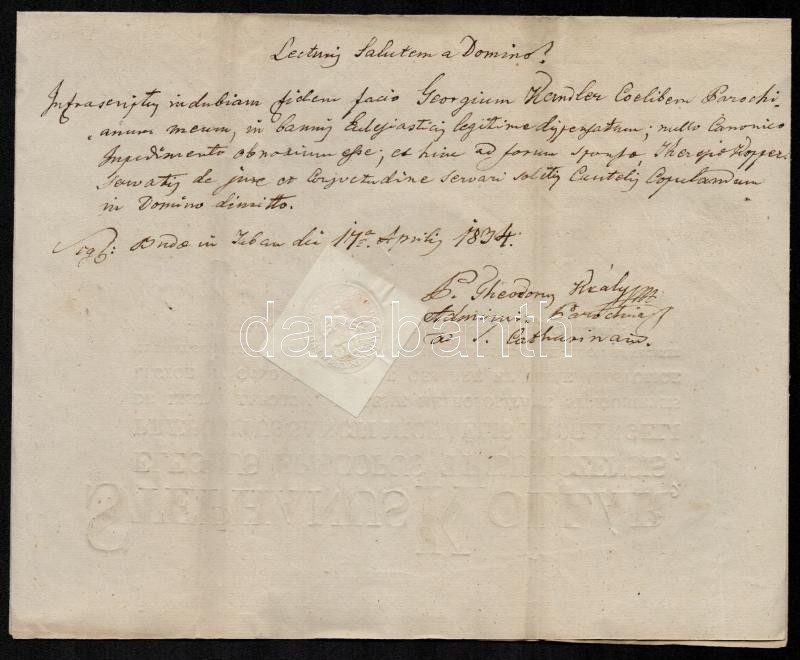 Lecturis Salutem a Domino!
Infrascriptus indubiam fidem facio Georgium Kandler Coelibem Parochi-
anum meum, in bannis Ecclesiasticis legitime dispensatum; nullo Canonico
Impedimento obnoxium esse; et hinc ad forum Sponsæ, Theresiæ Hopper.
Servatis de jure et Consvetudine servari solitis Cautelis Copulandum
in Domino dimitto.
Sigb: Budæ in Taban die 17a Aprilis 1834.
P. Theodorus Király
Adminis. Parochiæ
ad S. Catharinam.
darabanth